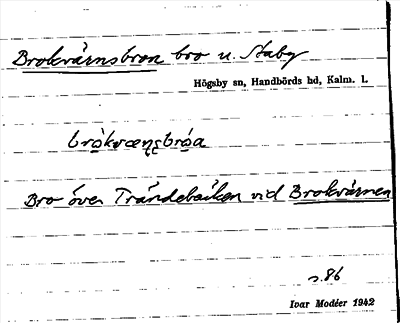 Brokvärnsbron bro u. Staby
Högsby sn, Handbörds hd, Kalm. l.
bro över Trändebäcken vid Brokvärnen
s. 86
Ivar Modéer 1942